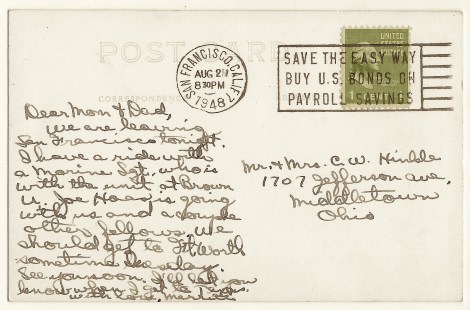 POST CARD
CORRESPONDENCE
SAN FRANCISCO, CALIF.
AUG 2
8 30 PM
1948
SAVE THE EASY WAY
BUY U.S. BONDS ON
PAYROLL SAVINGS
UNITED
STATES
Dear Mom & Dad,
We are leaving
San Francisco tonight.
I have a ride with
a Marine Sgt. who is
with the unit at Brown
U. Joe is going
with us and a couple
other fellows. We
should get to Ft. Worth
sometime
See you soon. I'll let you
know when I get to Texas.
with love,
Mr. & Mrs. C. W. Hinkle
1707 Jefferson Ave.
Middletown
Ohio